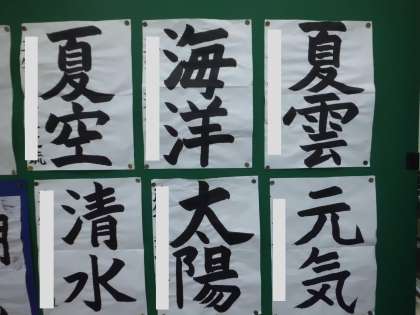 夏雲
海洋
夏空
元気
太陽
清水